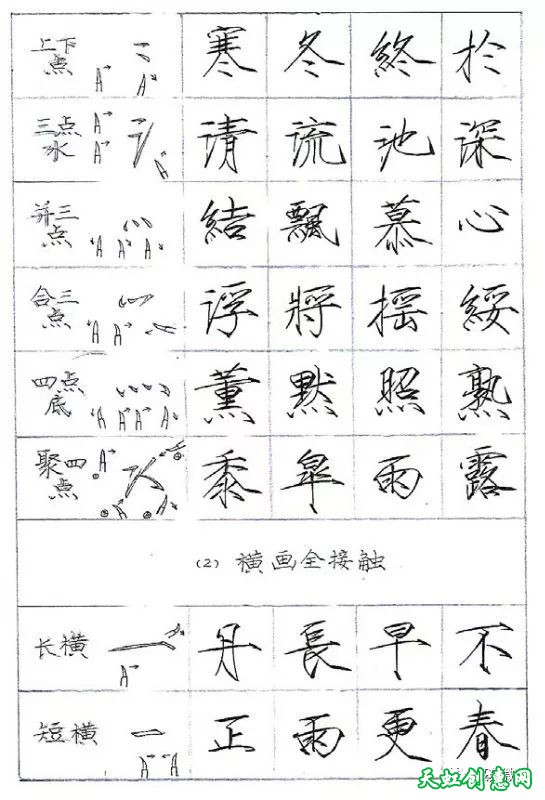 上下点 寒 冬 終 於
三点水 请 流 池 深
并三点 結 飄 慕 心
合三点 浮 將 摇 綏
四点底 薰 默 照 熟
聚四点 黍 皐 雨 露
(2) 横画全接触
长横 丹 長 早 不
短横 正 雨 更 春
天虹创意网